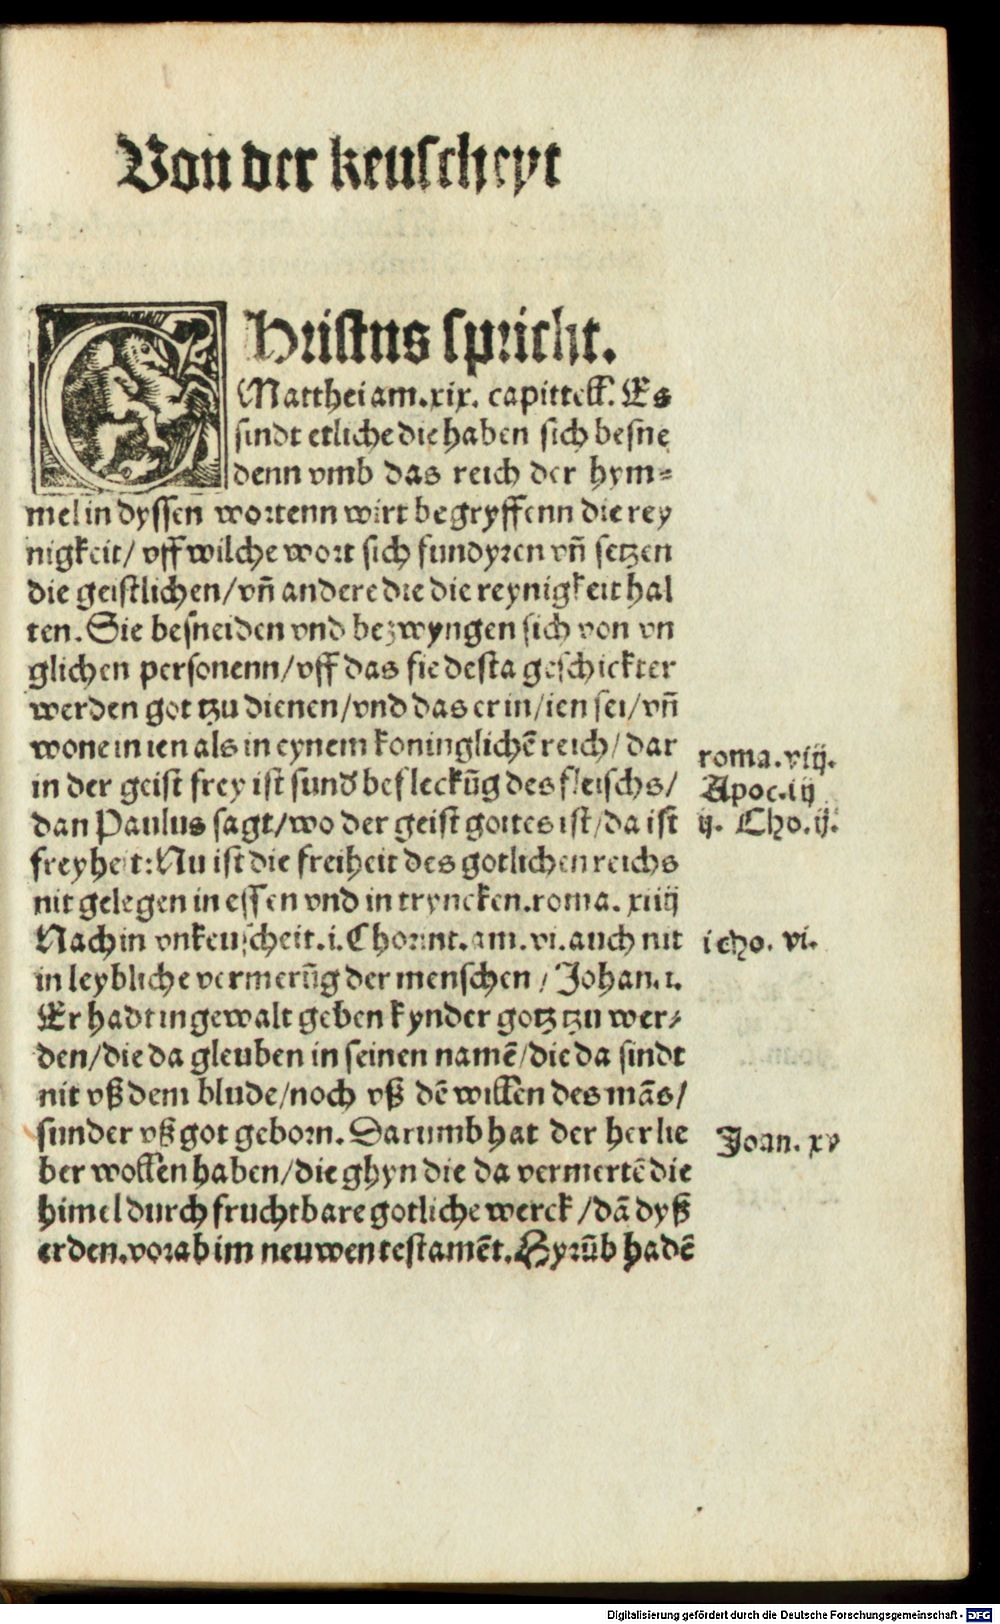 Von der keuscheyt
CHristus spricht.
Matthei am. xix. capittell. Es
sindt etliche die haben sich besne
denn vmb das reich der hym⸗
mel in dyssen wortenn wirt begryffenn die rey
nigkeit/ vff wilche wort sich fundyren vñ setzen
die geistlichen/ vñ andere die die reynigkeit hal
ten. Sie besneiden vnd bezwyngen sich von vn
glichen personenn/ vff das sie desta geschickter
werden got tzu dienen/ vnd das er in/ ien sei/ vñ
wone in ien als in eynem koninglichē reich/ dar
in der geist frey ist sund befleckūg des fleischs/
dan Paulus sagt/ wo der geist gottes ist/ da ist
freyheit: Nu ist die freiheit des gotlichen reichs
nit gelegen in essen vnd in tryncken. roma. xiiij
Nach in vnkeuscheit. i. Chorint. am. vi. auch nit
in leybliche vermerūg der menschen/ Johan. i.
Er hadt in gewalt geben kynder gotz tzu wer⸗
den/ die da gleuben in seinen namē/ die da sindt
nit vß dem blude/ noch vß dē willen des mās/
sunder vß got geborn. Darumb hat der her lie
ber wollen haben/ die ghyn die da vermertē die
himel durch fruchtbare gotliche werck/ dā dyß
erden. vorab im neuwen testamēt. Hyrūb hadē
roma. viij.
Apoc. iij
ij. Cho. ij.
i cho. vi.
Joan. xv
Digitalisierung gefördert durch die Deutsche Forschungsgemeinschaft - DFG